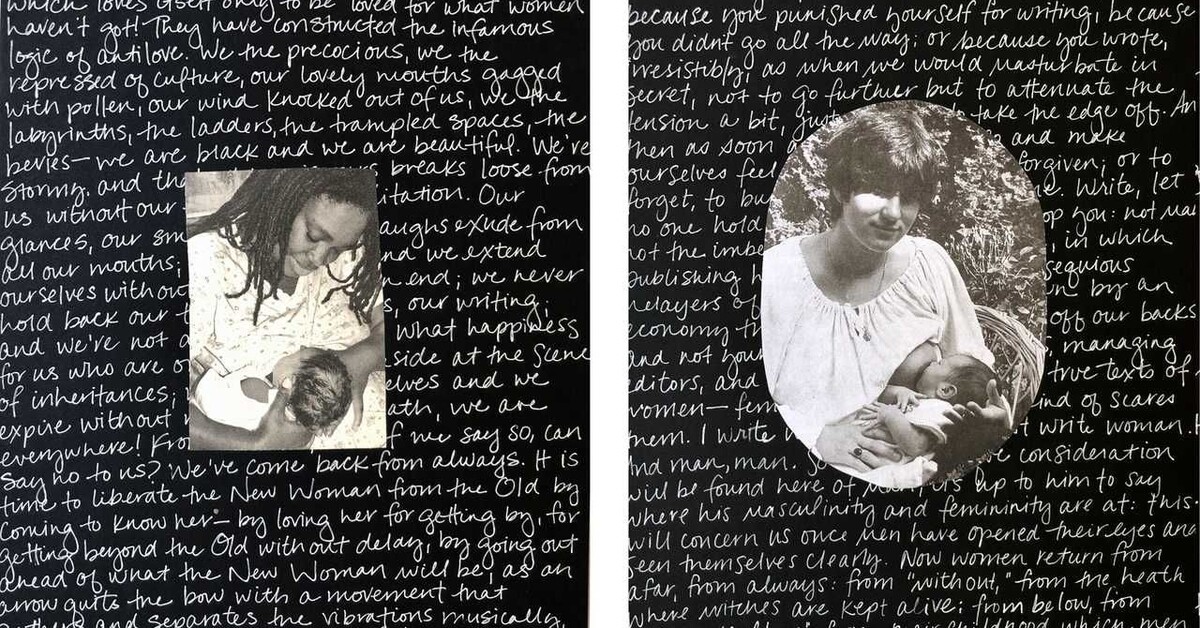 which loves itself only to be loved for what women
haven't got! They have constructed the infamous
logic of antilove. We the precocious, we the
repressed of culture, our lovely mouths gagged
with pollen, our wind knocked out of us, we the
labyrinths, the ladders, the trampled spaces, the
bevies— we are black and we are beautiful. We're
stormy, and tha breaks loose from
us without our itation. Our
glances, our sm aughs exude from
all our mouths; nd we extend
ourselves without end; we never
hold back our t s, our writing;
and we're not a what happiness
for us who are o side at the scene
of inheritances; elves and we
expire without ath, we are
everywhere! Fro f we say so, can
say no to us? We've come back from always. It is
time to liberate the New Woman from the Old by
coming to know her— by loving her for getting by, for
getting beyond the Old without delay, by going out
ahead of what the New Woman will be, as an
arrow quits the bow with a movement that
and separates the vibrations musically,
because you punished yourself for writing, because
you didn't go all the way; or because you wrote,
irresistibly, as when we would masturbate in
secret, not to go further but to attenuate the
tension a bit, just take the edge off. An
then as soon a and make
ourselves feel forgiven; or to
forget, to bu Write, let
no one hold op you: not ma
not the imbe , in which
publishing h sequious
relayers of n by an
economy t off our backs
and not your , managing
editors, and true texts of
women— fem ind of scares
them. I write t write woman.
And man, man. So consideration
will be found here of man; it's up to him to say
where his masculinity and femininity are at: this
will concern us once men have opened their eyes and
seen themselves clearly. Now women return from
afar, from always: from "without," from the heath
where witches are kept alive; from below, from
childhood which men